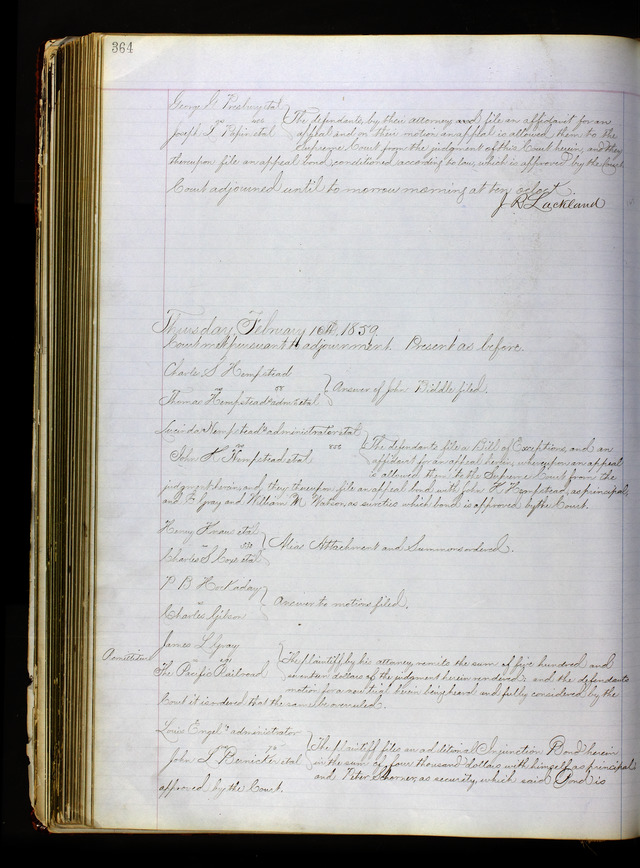 364
George G. Presbury et al
vs
Joseph L. Papin et al
The defendants, by their attorney and file an affidavit for an
appeal and on their motion an appeal is allowed them to the
Supreme Court from the judgment of this Court herein, and they
thereupon file an appeal bond, conditioned according to law, which is approved by the Court.
Court adjourned until tomorrow morning at ten oclock.
J R Lackland
Thursday February 10th, 1859
Court met pursuant to adjournment. Present as before.
Charles S. Hempstead
vs
Thomas Hempstead's admr et al
Answer of John Biddle filed.
Lucinda Hempstead's administrator et al
vs
John H. Hempstead et al
The defendants file a Bill of Exceptions, and an
affidavit for an appeal herein, whereupon an appeal
is allowed them to the Supreme Court from the
judgment herein, and they thereupon file an appeal bond with John H. Hempstead, as principal,
and F. Gray and William M. Watson, as sureties which bond is approved by the Court.
Henry Knaus et al
vs
Charles S. et al
Alias Attachment and Summons ordered.
P B Hockaday
vs
Charles Gibson
Answer to motions filed.
Remittitur
James L. Gray
vs
The Pacific Railroad
The plaintiff by his attorney remits the sum of five hundred and
dollars of the judgment herein rendered, and the defendants
motion for a new trial herein being heard and fully considered by the
Court it is ordered that the same be overruled.
Louis Engel's administrator
vs
John T. et al
The plaintiff files an additional Injunction Bond herein
in the sum of four thousand dollars with himself as principal
and Peter, as security, which said Bond is
approved by the Court.